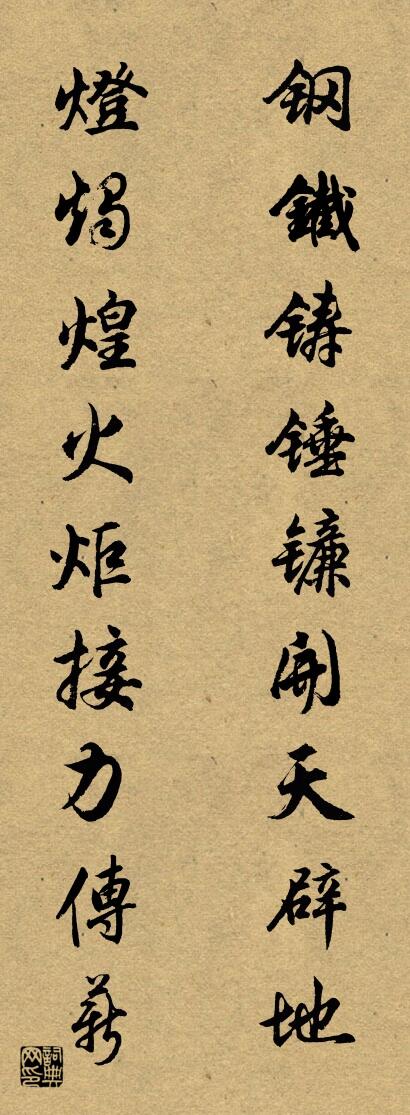 钢鐵铸锤镰開天辟地
燈燭煌火炬接力傳薪
詞典
网印